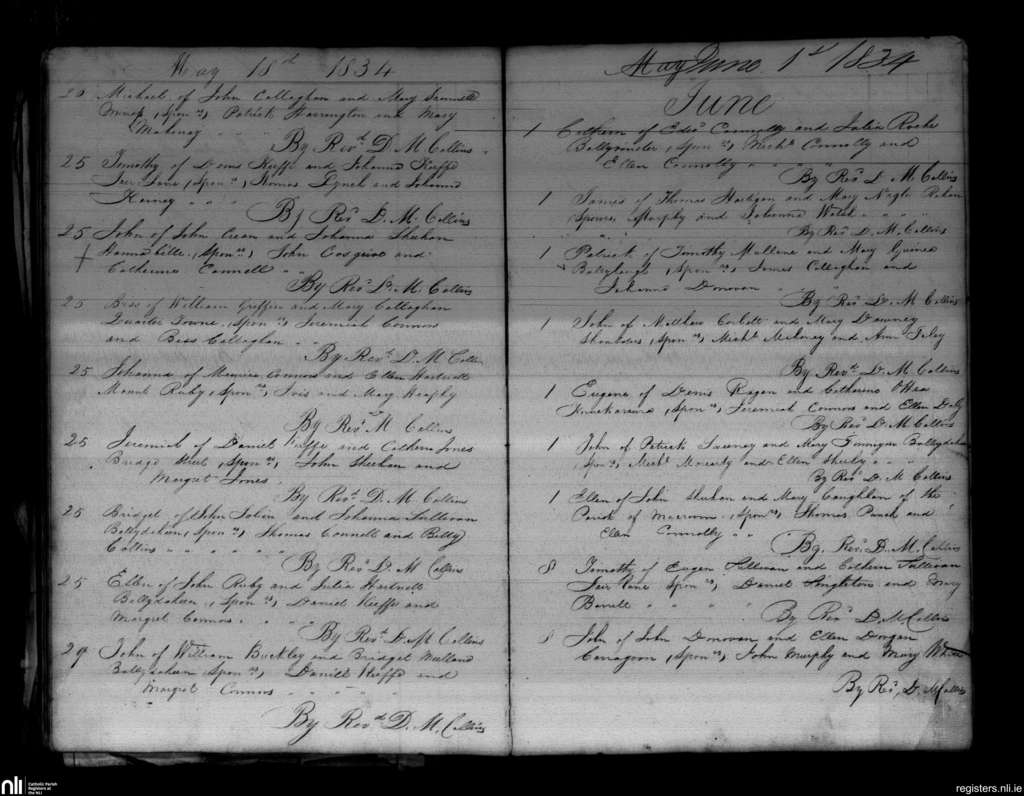 May 18th 1834
20 Michael of John Callaghan and Mary
Spons, Patrick Harrington and Mary
Mahony
By Revd. D. M Collins
25 Timothy of Denis Keeffe and Johanna Keeffe
Lane, Spons, Thomas Lynch and Johanna
By Revd D. M. Collins
25 John of John Crean and Johanna Sheehan
+ Spons, John Cosgrive and
Catherine Connell
By Revd D. M. Collins
25 Bess of William Griffin and Mary Callaghan
Quarter Towne, Spons, Jeremiah Connors
and Bess Callaghan
By Revd. D. M Collins
25 Johanna of Maurice Connors and Ellen Hartnett
Mount Ruby, Spons, and Mary
By Revd M Collins
25 Jeremiah of Daniel Keeffe and Cathern Jones
Bridge Street, Spons, John Sheehan and
Margret Jones.
By Revd. D. M Collins
25 Bridget of John Tobin and Johanna Sullivan
Ballydaheen, Spons, Thomas Connell and Betty
Collins
By Revd D. M Collins
25 Ellen of John Ruby and Julia Hartnett
Ballydaheen, Spons, Daniel Keeffe and
Margret Connors.
By Revd. D. M Collins
29 John of William Buckley and Bridget
Ballydaheen Spons, Daniel Keeffe and
Margret Connors
By Revd D. M. Collins
May June 1st 1834
June
1 of Edwd Connolly and Julia Roche
Spons, Michl Connolly and
Ellen Connolly
By Revd D M Collins
1 James of Thomas and Mary Nagle
Murphy and Johanna
By Revd D. M. Collins
1 Patrick of Timothy Mullane and Mary
Spons, James Callaghan and
Johanna Donovan
By Revd D. M Collins
1 John of Matthew Corbett and Mary Downey
Spons, Michl and Ann
By Revd. D. M Collins
1 Eugene of Denis Regan and Catherine O Hea
Spons, Jeremiah Connors and Ellen Daly
By Revd D. M. Collins
1 John of Patrick and Mary Finnigan Ballydaheen
Spons, Michl Moriarty and Ellen Sheehy
By Revd D. M Collins
1 Ellen of John Sheehan and Mary Coughlan of the
Parish of Macroom, Spons, Thomas and
Ellen Connolly
By Revd D. M. Collins
8 Timothy of Eugen Sullivan and Cathern Sullivan
Lane Spons, Daniel Singleton and Mary
Barrett
By Revd D. M Collins
8 John of John Donovan and Ellen Dorgan
Carragoon, Spons, John Murphy and Mary White
By Revd, D. M Collins
nli
Catholic Parish
Registers at
the NLI
registers.nli.ie